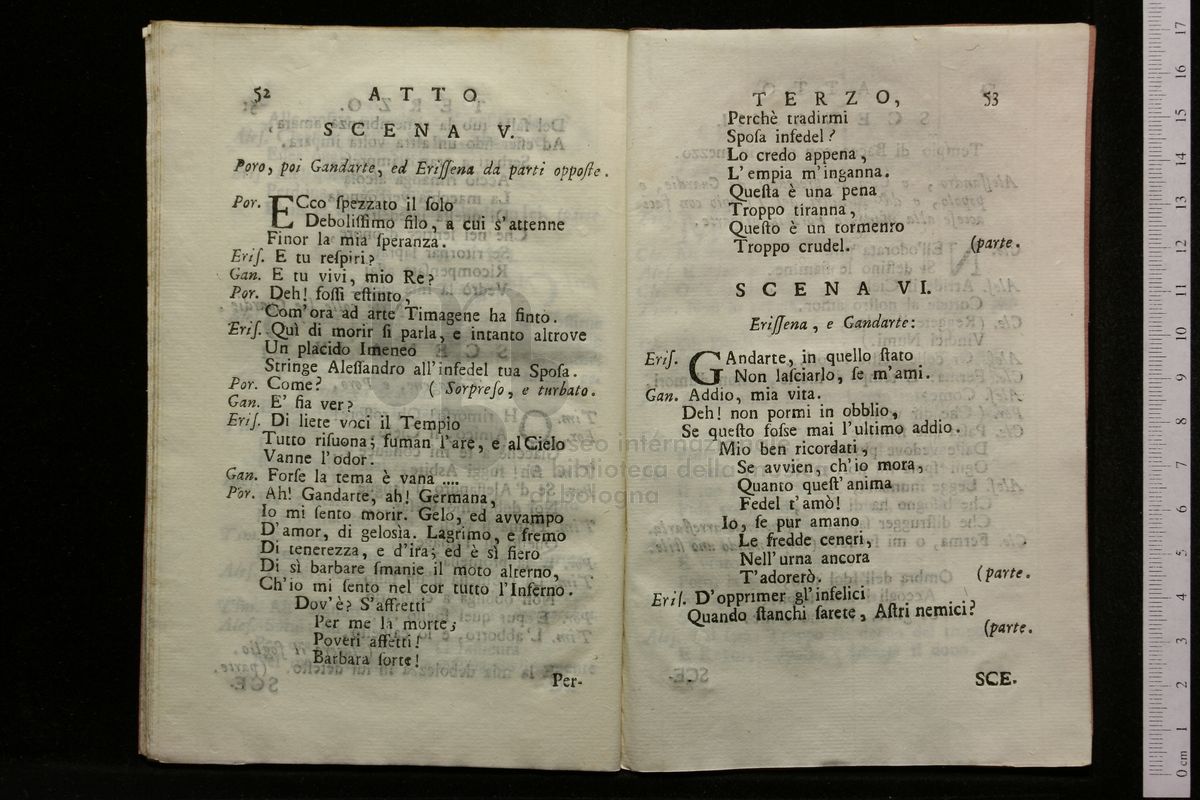 52 ATTO
SCENA V.
Poro, poi Gandarte, ed Eriſſena da parti oppoſte.
Por. ECco ſpezzato il ſolo
Deboliſſimo filo, a cui s'attenne
Finor la mia ſperanza.
Eriſ. E tu reſpiri?
Gan. E tu vivi, mio Re?
Por. Deh! foſſi eſtinto,
Com'ora ad arte Timagene ha finto.
Eriſ. Quì di morir ſi parla, e intanto altrove
Un placido Imeneo
Stringe Aleſſandro all'infedel tua Spoſa.
Por. Come? ( Sorpreſo, e turbato.
Gan. E' fia ver?
Eriſ. Di liete voci il Tempio
Tutto riſuona; fuman l'are, e al Cielo
Vanne l'odor.
Gan. Forſe la tema è vana ....
Por. Ah! Gandarte, ah! Germana,
Io mi ſento morir. Gelo, ed avvampo
D'amor, di geloſia. Lagrimo, e fremo
Di tenerezza, e d'ira; ed è sì fiero
Di sì barbare ſmanie il moto alterno,
Ch'io mi ſento nel cor tutto l'Inferno.
Dov'è? S'affretti
Per me la morte;
Poveri affetti!
Barbara ſorte!
Per-
TERZO, 53
Perchè tradirmi
Spoſa infedel?
Lo credo appena,
L'empia m'inganna.
Queſta è una pena
Troppo tiranna,
Queſto è un tormento
Troppo crudel. (parte.
SCENA VI.
Eriſſena, e Gandarte:
Eriſ. GAndarte, in quello ſtato
Non laſciarlo, ſe m'ami.
Gan. Addio, mia vita.
Deh! non pormi in obblio,
Se queſto foſse mai l'ultimo addio.
Mio ben ricordati,
Se avvien, ch'io mora,
Quanto queſt'anima
Fedel t'amò!
Io, ſe pur amano
Le fredde ceneri,
Nell'urna ancora
T'adorerò. (parte.
Eriſ. D'opprimer gl'infelici
Quando ſtanchi ſarete, Aſtri nemici?
(parte.
SCE.
museo internazionale
e biblioteca della musica
di bologna
0 cm 1 2 3 4 5 6 7 8 9 10 11 12 13 14 15 16 17